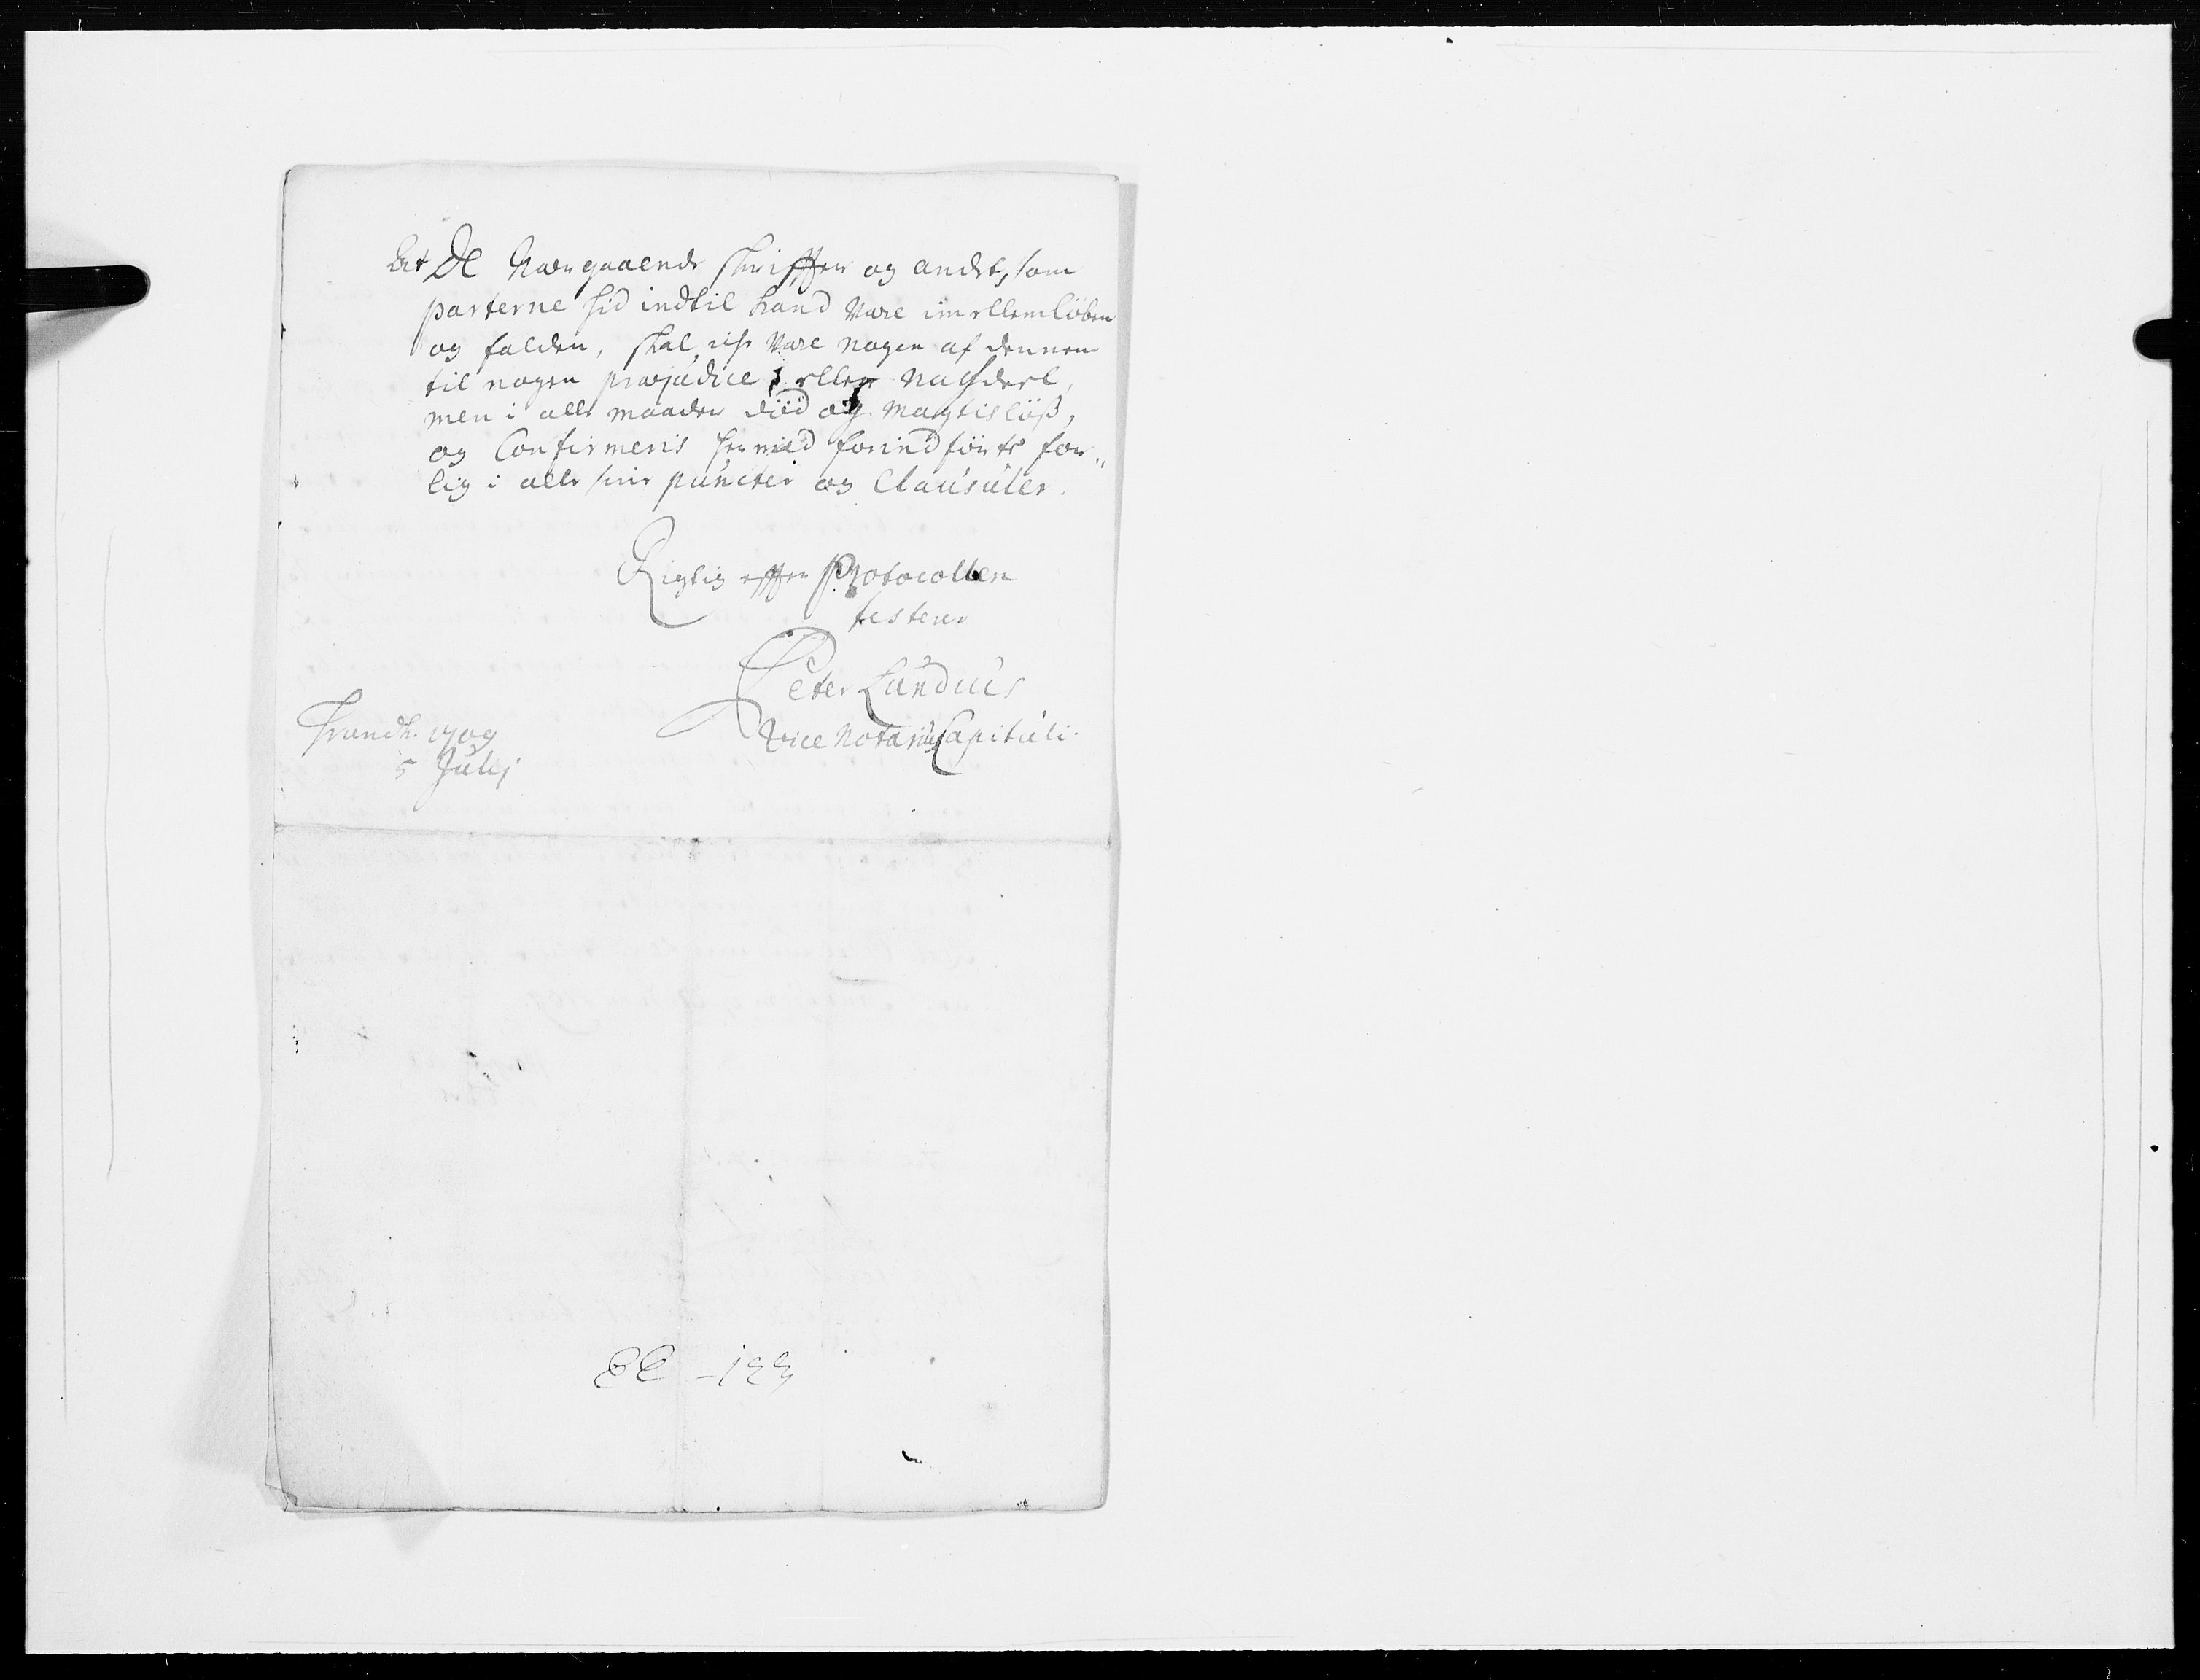 At De Nærgaaende skriffter og andet, som
parterne hid indtil haand Være imellemløben
og falden, skal icke Være nogen af dennem
til nogen præjudice eller Nachdeel,
men i alle maader död og magtislöß,
og Confirmeris hermed forindførte for„
lig i alle sine puncter og Clausuler.
Rigtig efter Protocollen
testerer
Peter Lundius
Trundh. 1709
Vice Notarius Capituli.
5 Julij